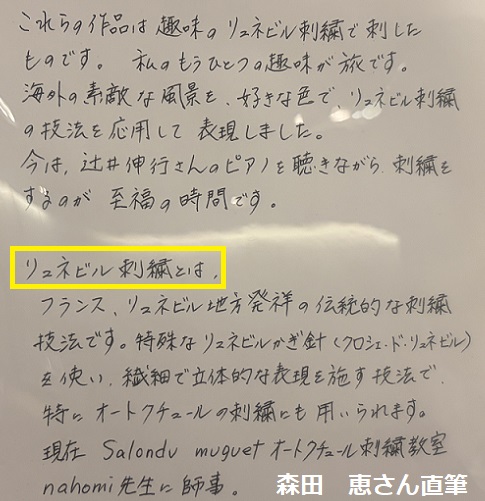 これらの作品は趣味のリュネビル刺繍で刺した
ものです。 私のもうひとつの趣味が旅です。
海外の素敵な風景を、好きな色で、リュネビル刺繍
の技法を応用して 表現しました。
今は、辻井伸行さんのピアノを聴きながら 刺繍を
するのが 至福の時間です。
リュネビル刺繍とは、
フランス、リュネビル地方発祥の伝統的な刺繍
技法です。特殊なリュネビルかぎ針(クロシェ・ド・リュネビル)
を使い、繊細で立体的な表現を施す技法で、
特にオートクチュールの刺繍にも用いられます。
現在 Salondu muguet オートクチュール刺繍教室
nahomi先生に師事。
森田 恵さん直筆